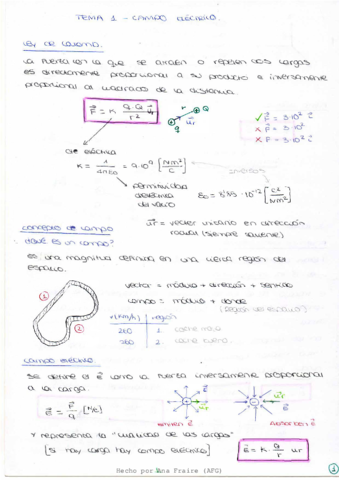 TEMA 1 - CAMPO ELÉCTRICO.
LEY DE COULOMB.
La fuerza con la que se atraen o repelen dos cargas
es directamente proporcional a su producto e inversamente
proporcional al cuadrado de la distancia.
F = K Q·q / r² ur
r Q
q ur
✓ F = 3·10² i
✗ F = 3·10²
✗ F = 3·10² i
cte eléctrica
K = 1/4πε0 = 9·10⁹ [Nm²/C]
permitividad
eléctrica
del vacío
ε0 = 8'85·10⁻¹² [C²/Nm²]
ur = vector unitario en dirección
radial (siempre saliente)
concepto de campo
¿Qué es un campo?
es una magnitud definida en una cierta región del
espacio.
vector = módulo + dirección + sentido
campo = módulo + donde
(Región del espacio)
v (km/h) región
260 1.
360 2.
campo eléctrico
Se define el E como la fuerza inversamente proporcional
a la carga.
E = F/q [N/C]
E
ur
ur
E
y representa la "cualidad de las cargas"
[Si hay carga hay campo eléctrico]
E = K q/r ur
Hecho por Ana Fraire (AFG)
1